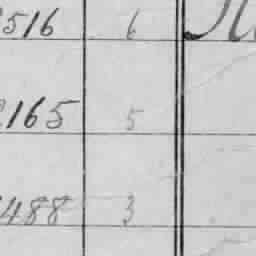 516 6
165 5
488 3